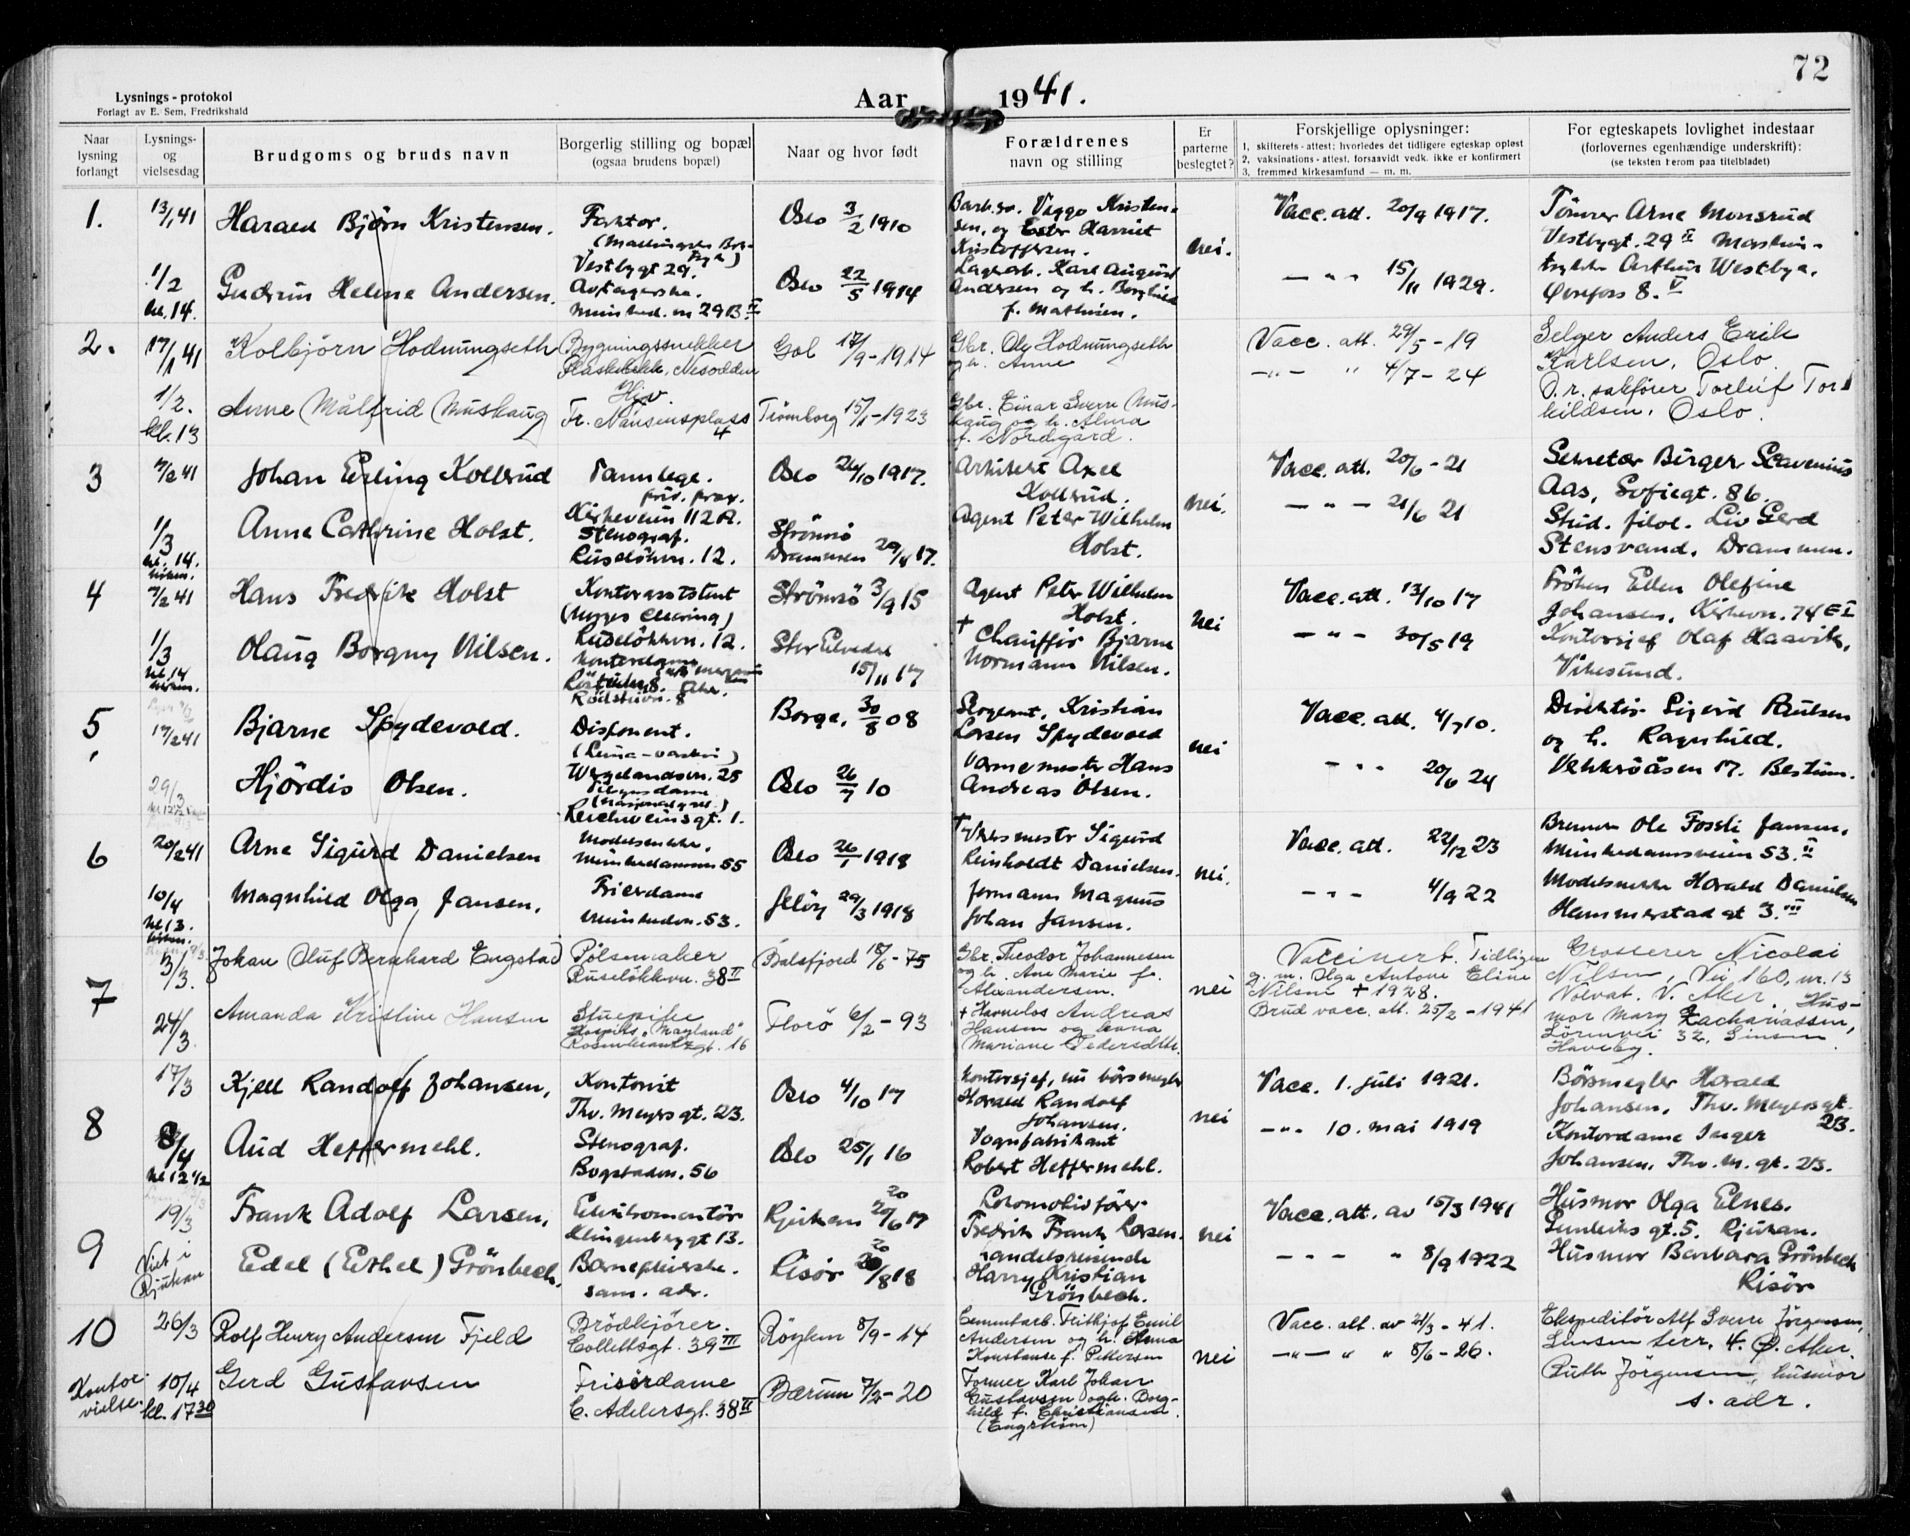 72
Lysnings-protokol
Forlagt av E. Sem, Fredrikshald
Aar 1941.
Naar lysning forlangt
Lysnings- og vielsesdag
Brudgoms og bruds navn
Borgerlig stilling og bopæl (ogsaa brudens bopæl)
Naar og hvor født
Forældrenes navn og stilling
Er parterne beslegtet?
Forskjellige oplysninger:
1. skilterets-attest: hvorledes det tidligere egteskap opløst
2. vaksinations-attest, forsaavidt vedk. ikke er konfirmert
3. fremmed kirkesamfund — m. m.
For egteskapets lovlighet indestaar (forlovernes egenhændige underskrift): (se teksten herom paa titelbladet)
1.
13/1 41
Harald Bjørn Kristensen.
Faktor.
Vestbygt 29.
Oslo 3/2 1910
Viggo Kristensen, og Ester Harriet Kristoffersen.
nei.
Vacc. att. 20/9 1917.
Tømrer Arne Monsrud
Vestbygt. 29 II
1/2
kl. 14.
Gudrun Helene Andersen.
Avtagerske.
Munked. vn 29B II
Oslo 22/5 1914
Lagerarb. Karl August Andersen og h. Borghild f. Mathisen.
— " — 15/11 1929.
Arthur Westbye.
8. V
2.
17/1 41
Kolbjörn Hodnungseth
Bygningssnekker
Flaskebekk, Nesodden
Gol 17/9 - 1914
Gbr. Ole Hodnungseth
og h. Anne
Vacc. att. 29/5 - 19
Selger Anders Erik Karlsen, Oslo.
1/2.
kl. 13
Anne Målfrid Muskaug
Fr. Nansensplass 4
Trömborg 15/1 - 1923
Gbr. Einar Sverre Muskaug og h. Alma f. Nordgard.
— " — " 4/7 - 24
O.r. sakfører Torleif Torkildsen, Oslo.
3
7/2 41
Johan Erling Kolbrud
Tannlege.
priv. prax.
Kirkeveien 112A.
Oslo 24/10 1917.
Arkitekt Axel Kolbrud.
nei.
Vacc. att. 20/6 - 21
Sekretær Birger Scavenius Aas, Sofiegt. 86.
1/3
kl. 14.
Anne Cathrine Holst.
Stenograf.
Ruselökkvn. 12.
Strömsö Drammen 29/8 17.
Agent Peter Wilhelm Holst.
— " — 21/6 21
Stud. filol. Liv Gerd Stensvand, Drammen.
4
7/2 41
Hans Fredrik Holst
Kontorassistent
(Norges Clearing)
Ruselökkvn. 12.
Strömsö 3/9 15
Agent Peter Wilhelm Holst.
nei
Vacc. att. 13/10 17
Fröken Eden Olefine Johansen, Kirkevn. 74 E I
1/3
kl. 14
Olaug Borgny Nilsen.
Kontordame
Stor Elvedal 15/11 17
+ Chauffør Bjarne Normann Nilsen.
— " — 30/5 19
Kontorsjef Olaf Haavik, Vikesund.
5
17/2 41
Bjarne Spydevold.
Disponent.
Wergelandsvn. 25
Borge. 30/8 08
Kristian Larsen Spydevold
nei
Vacc. att. 4/7 10.
Direktör Sigurd Paulsen og h. Ragnhild.
29/3
Hjördis Olsen.
Reichweinsgt. 1.
Oslo 26/7 10
Varmemester Hans Andreas Olsen.
— " — 20/6 24
Vekkeröåsen 17. Bestum.
6
20/2 41
Arne Sigurd Danielsen
Munkedammsvn 55
Oslo 26/1 1918
Sigurd Reinholdt Danielsen.
nei.
Vacc. att. 22/12 23
Ole Fossli Jansen, Munkedamsveien 53. II
10/4
kl 13.
Magnhild Olga Jansen,
Frisrdame
Munkedvn. 53.
Jelöy 29/3 1918
Formann Magnus Johan Jansen.
— " — 4/9 22
Modelsnekker Harald Danielsen
Hammerstad gt 3. III
7
3/3.
Johan Oluf Bernhard Engstad
Pølsemaker
Ruselökkvn. 38 II
Balsfjord 18/6 - 75
Gbr. Theodor Johannesen og h. Ane Marie f. Alexandersen.
nei
Vaccinert. Tidligere g. m. Olga Antone Eline Nilsen + 1928.
Grosserer Nicolai Nilsen,
Volvat. V. Aker.
24/3
Amanda Kristine Hansen
Stuepike
Hospits "Mayland"
Rosenkrantzgt. 16
Florö 6/2 - 93
+ Havnelos Andreas Hansen og kona Mariane Pedersdttr.
Brud vacc. att. 25/2 - 1941
Husmor Mary Zachariassen, Lörenvei 32, Sinsen Haveby.
8
17/3
Kjell Randolf Johansen,
Kontorist
Thv. Meyersgt. 23.
Oslo 4/10 17
Kontorsjef, nu börsmegler Harald Randolf Johansen.
nei
Vacc. 1. juli 1921.
Börsmegler Harald Johansen, Thv. Meyersgt. 23.
8/4
kl 12 1/2
Aud Heffermehl.
Stenograf.
Bogstadvn. 56
Oslo 25/1 16
Vognfabrikant Robert Heffermehl.
— " — 10. mai 1919
Kontordame Inger Johansen, Thv. M. gt. 23.
9
19/3
Frank Adolf Larsen,
Elektromontör
Klingenberggt 13.
Rjukan 20/6 17
Lokomotivförer Fredrik Frank Larsen.
nei
Vacc. att. av 15/3 1941
Husmor Olga Elnes.
gt. 5. Rjukan.
Viet i Rjukan
Edel (Ethel) Grönbech.
Barnepleierske.
sam. adr.
Risör 20/8 18
Handelsreisende Harry Kristian Grönbech.
— " — " 8/9 1922
Husmor Barbara Grönbech Risör
10
26/3
Rolf Henry Andersen Fjeld
Brödkjörer.
Collettsgt. 39 III
Röyken 8/9 - 14
Cementarb. Frithjof Emil Andersen og h. Anna Konstanse f. Pettersen
nei
Vacc. att. av 21/3 - 41.
Ekspeditör Alf Sverre Jörgensen, Sinsen terr. 4. Ø. Aker.
Kontorvielse.
10/4
kl. 17 30
Gerd Gustavsen
Frisørdame
C. Adelersgt. 38 II
Bærum 7/2 - 20
Former Karl Johan Gustavsen og h. Borghild f. Christiansen. (Engström)
— " — " " 8/6 - 26.
Ruth Jörgensen, husmor
s. adr.